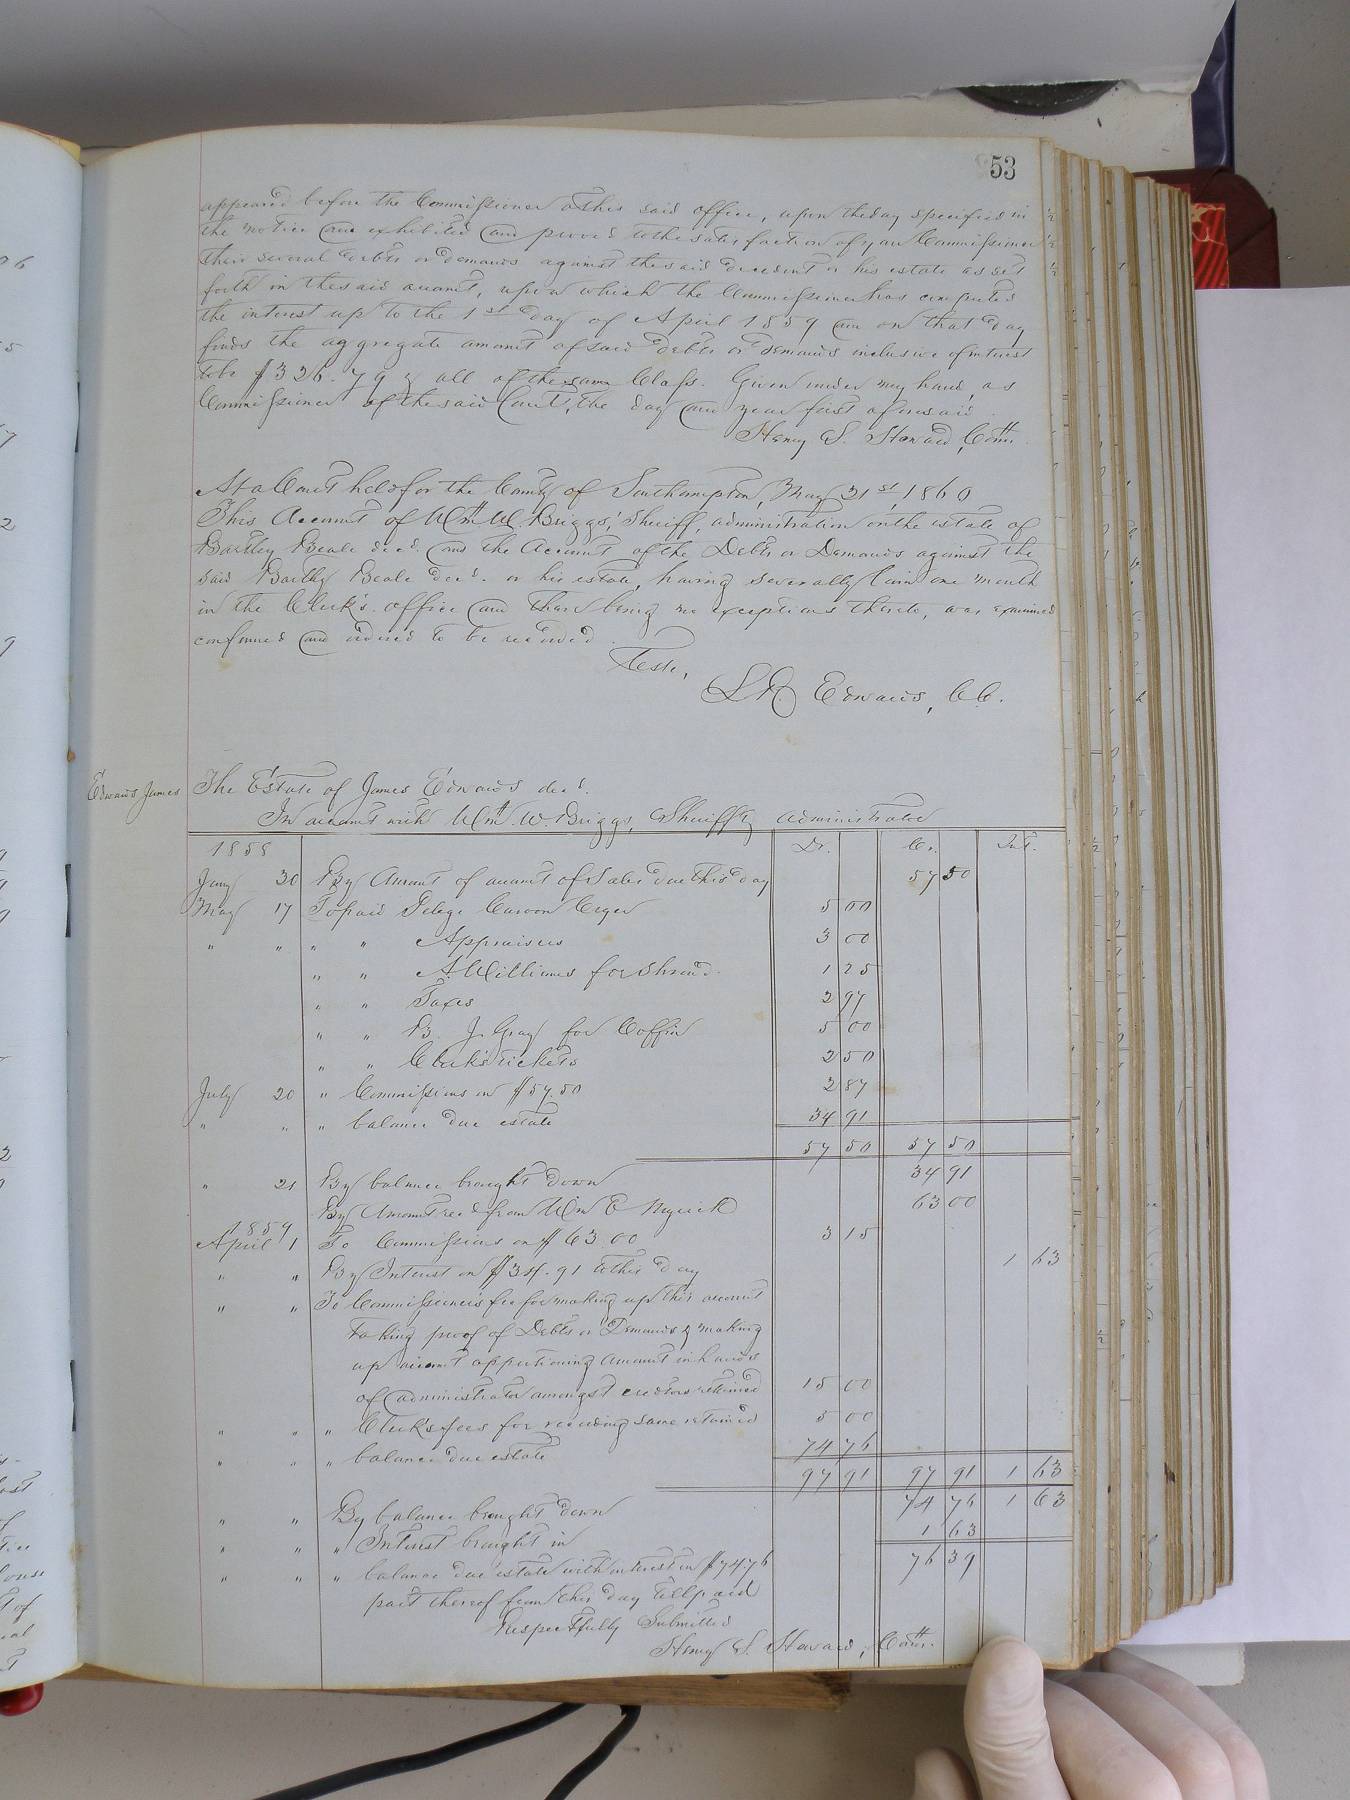 53
appeared before the Commissioner at his said office, upon the day specified in
the notice and exhibited and proved to the satisfaction of your Commissioner
their several debts or demands against the said decedent or his estate as set
forth in the said account, upon which the Commissioner has computed
the interest up to the 1st day of April 1859 and on that day
finds the aggregate amount of said debts or demands inclusive of interest
to be $326.79 & all of the same Class. Given under my hand, as
Commissioner of the said Court, the day and year first aforesaid
Henry S. Howard, Comr.
At a Court held for the County of Southampton, May 21st 1860
This Account of Wm. W. Briggs, Sheriff, administration on the estate of
Bartley Beale decd. and the Account of the Debts or Demands against the
said Bartley Beale decd. or his estate, having severally lain one month
in the Clerk's office and there being no exceptions thereto, was examined
confirmed and ordered to be recorded
Teste,
L R Edwards, C.C.
Edwards James
The Estate of James Edwards decd.
In account with Wm. W. Briggs, Sheriff & Administrator
1858 Dr. Cr. Int.
Jany 30 By Amount of account of Sales due this day 57 50
May 17 To paid Cryer 5 00
" " " " Appraisers 3 00
" " A. Williams for Shroud. 1 25
" " Taxes 2 97
" " B. J. Gray for Coffin 5 00
" " Clerk's tickets 2 50
July 20 " Commissions on $57.50 2 87
" " " balance due estate 34 91
57 50 57 50
" 21 By balance brought down 34 91
By Amount recd from Wm E 63 00
1859
April 1 To Commissions on $63.00 3 15
" " By Interest on $34.91 to this day 1 63
" " To Commissioner's fee for making up this account
taking proof of Debts or Demands & making
up account apportioning amount in hands
of administrator amongst creditors retained 15 00
" " " Clerk's fees for recording same retained 5 00
" " " balance due estate 74 76
97 91 97 91 1 63
" " By balance brought down 74 76 1 63
" " " Interest brought in 1 63
" " " balance due estate with interest on $74.76 76 39
part thereof from this day till paid
Respectfully Submitted
Henry S. Howard, Comr.